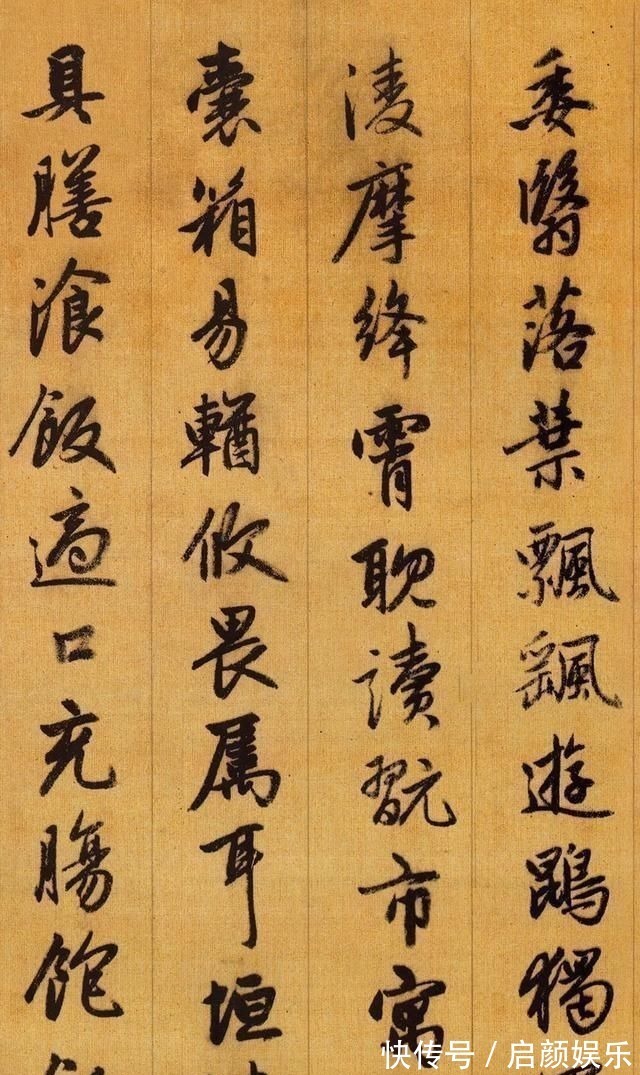 委翳落葉飄颻遊鵾獨
淩摩絳霄耽讀翫市寓
囊箱易輶攸畏属耳垣
具膳飡飯適口充腸飽
快传号 / 启颜娱乐